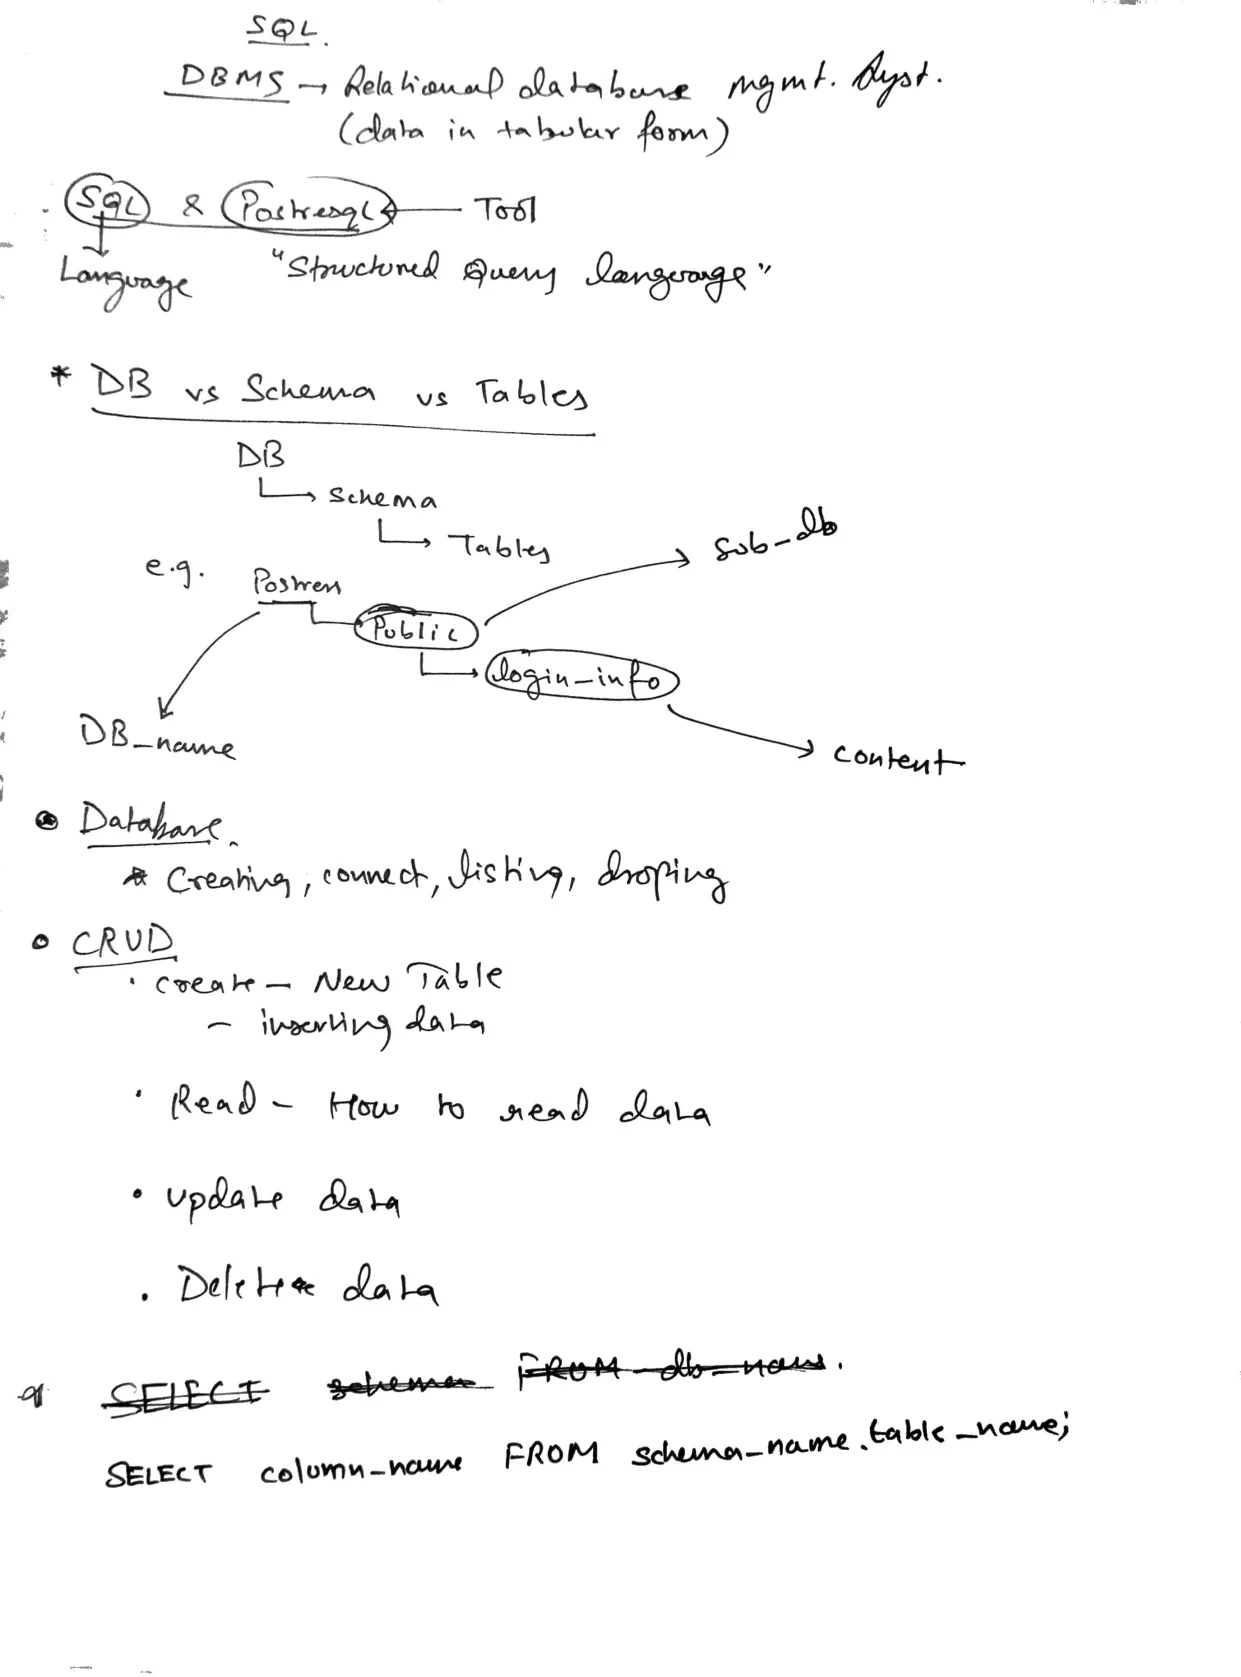 SQL.
DBMS → Relational database mgmt. syst.
(data in tabular form)
SQL & Postresql ← Tool
Language "Structured Query language"
* DB vs Schema vs Tables
DB
→ Schema
→ Tables
sub-db
e.g. Postres
Public
login-info
DB_name
content
Database.
* Creating, connect, listing, droping
CRUD
· create - New Table
- inserting data
· Read - How to read data
· update data
· Delete data
SELECT schema FROM db-name.
SELECT column-name FROM schema-name.table_name;